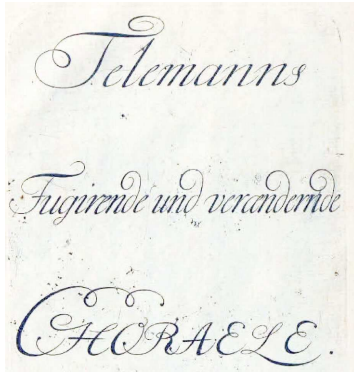 Telemanns
Fugirende und verændernde
CHORAELE.